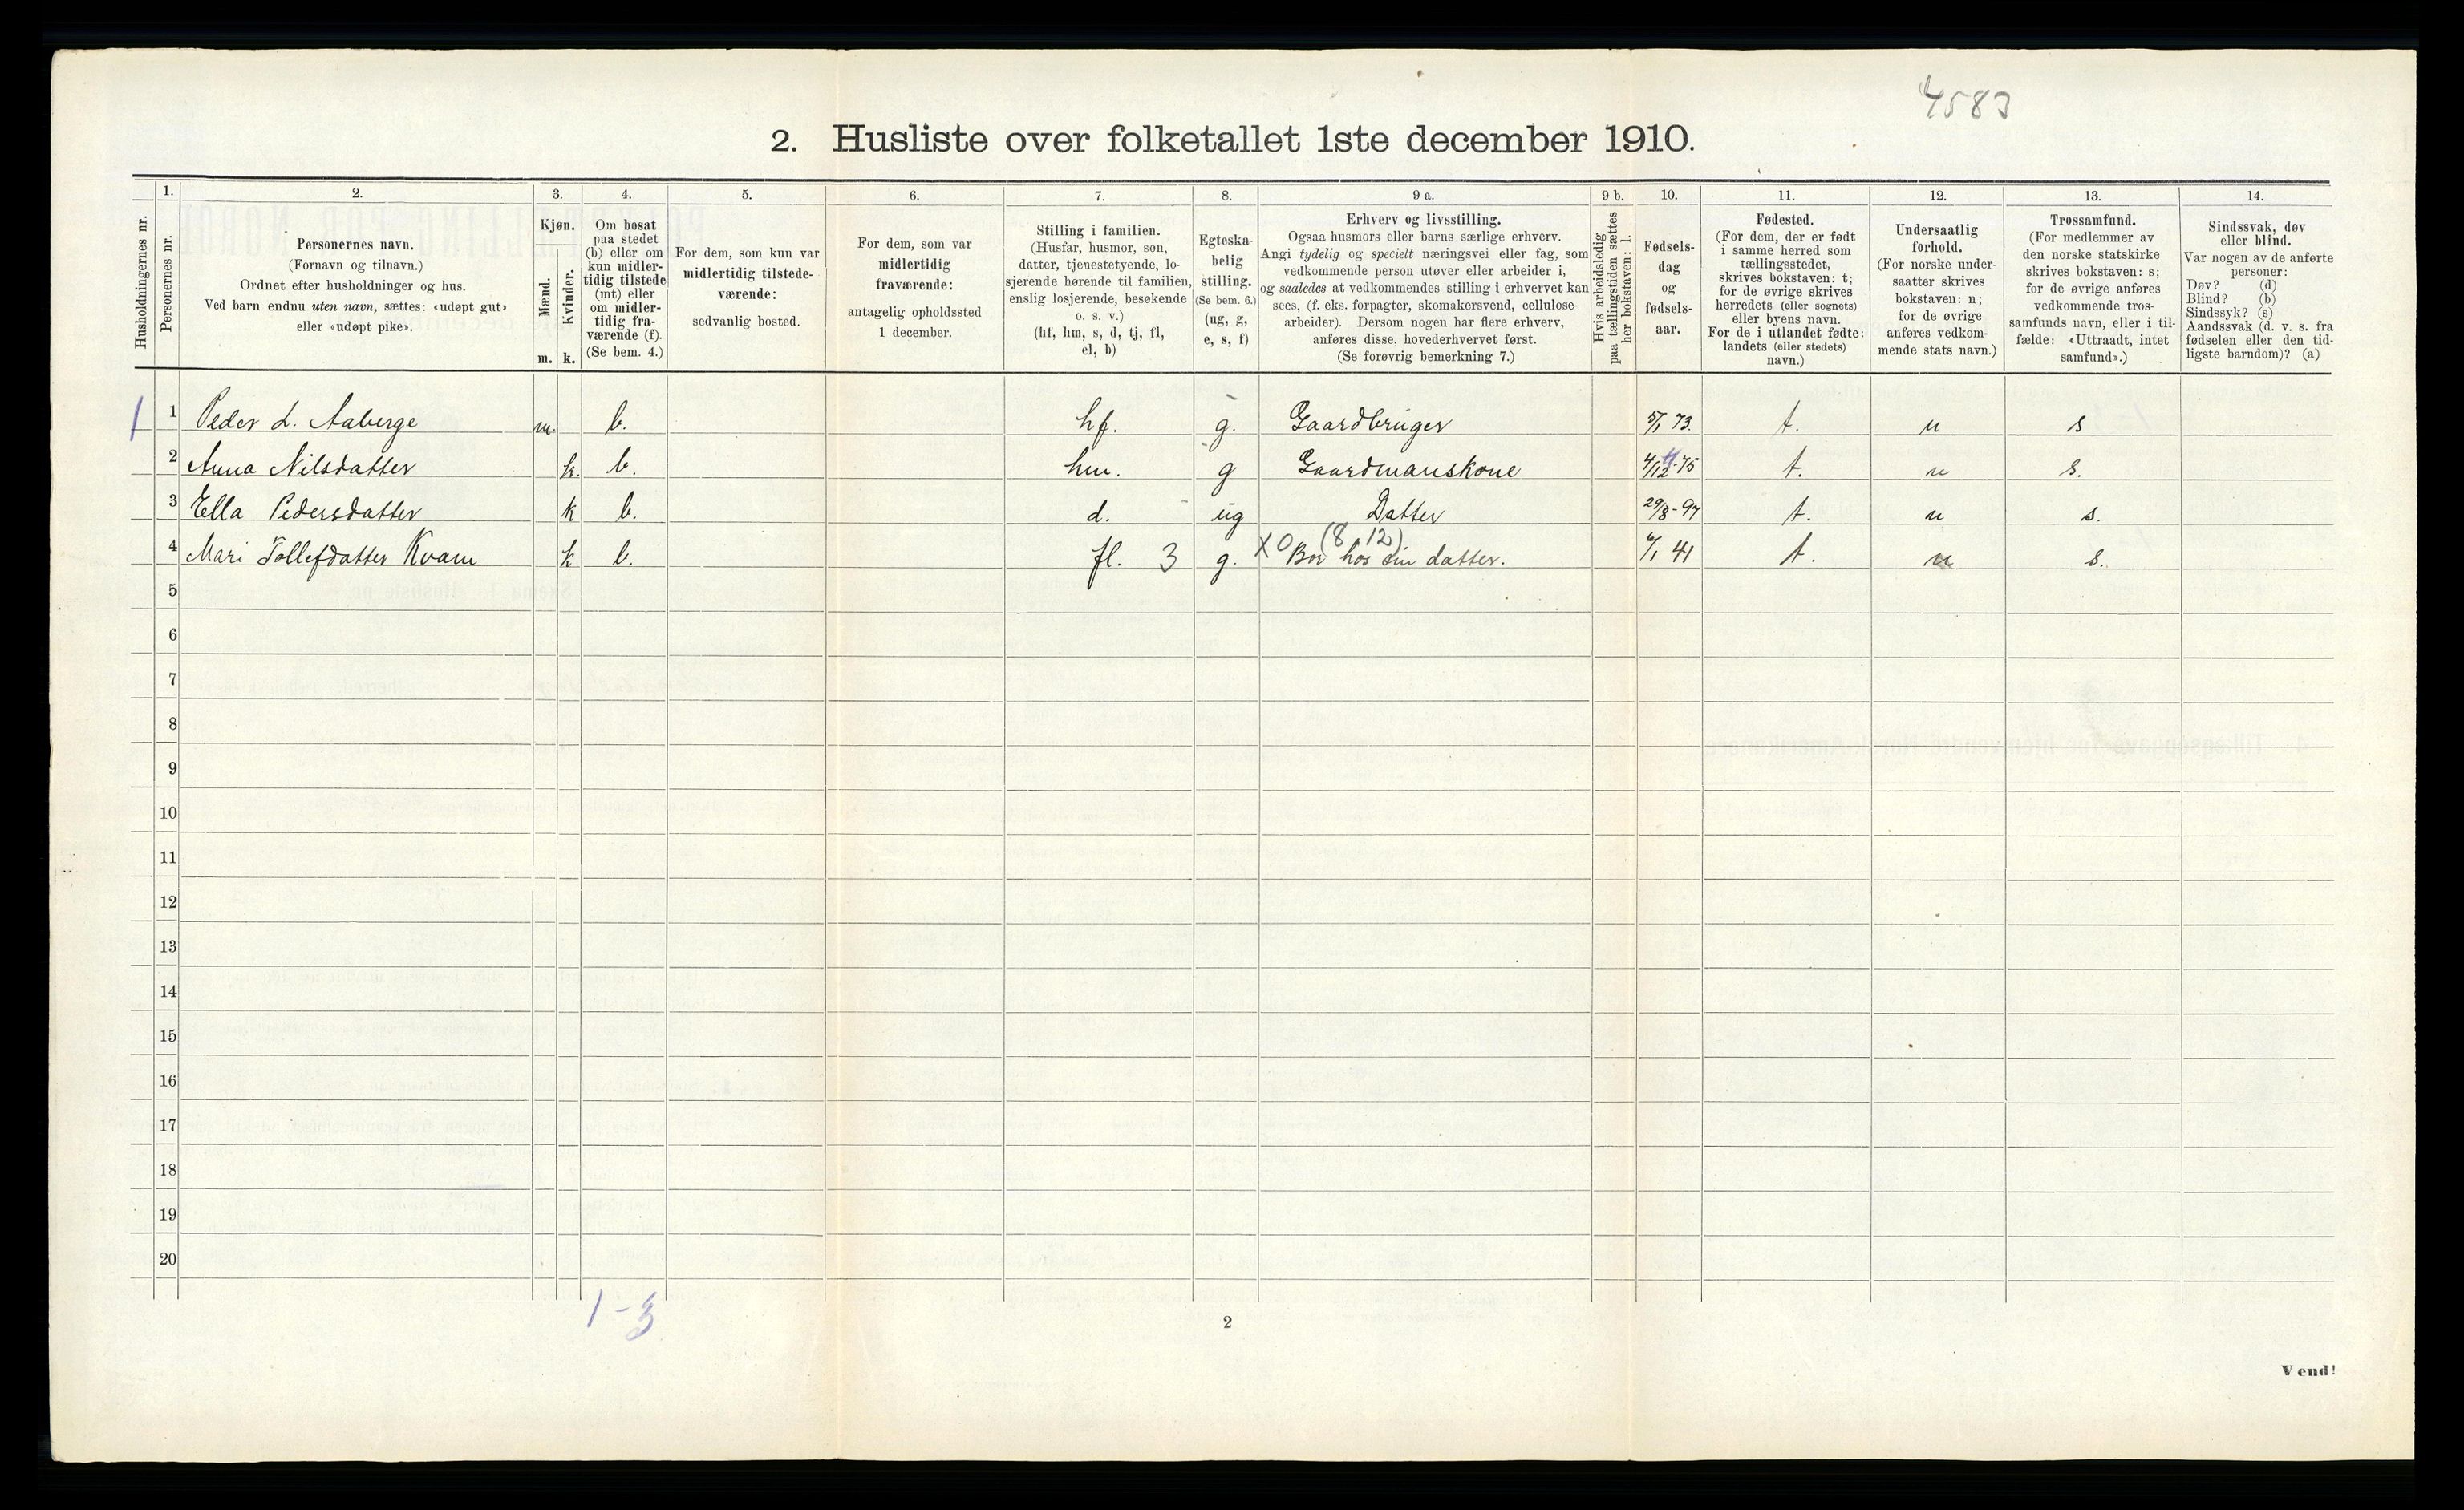 4583
2. Husliste over folketallet 1ste december 1910.
Husholdningernes nr.
1.
Personernes nr.
2.
Personernes navn.
(Fornavn og tilnavn.)
Ordnet efter husholdninger og hus.
Ved barn endnu uten navn, sættes: «udøpt gut»
eller «udøpt pike».
3.
Kjøn.
Mænd.
Kvinder.
m. k.
4.
Om bosat
paa stedet
(b) eller om
kun midler-
tidig tilstede
(mt) eller
om midler-
tidig fra-
værende (f).
(Se bem. 4.)
5.
For dem, som kun var
midlertidig tilstede-
værende:
sedvanlig bosted.
6.
For dem, som var
midlertidig
fraværende:
antagelig opholdssted
1 december.
7.
Stilling i familien.
(Husfar, husmor, søn,
datter, tjenestetyende, lo-
sjerende hørende til familien,
enslig losjerende, besøkende
o. s. v.)
(hf, hm, s, d, tj, fl,
el, b)
8.
Egteska-
belig
stilling.
(Se bem. 6.)
(ug, g,
e, s, f)
9 a.
Erhverv og livsstilling.
Ogsaa husmors eller barns særlige erhverv.
Angi tydelig og specielt næringsvei eller fag, som
vedkommende person utøver eller arbeider i,
og saaledes at vedkommendes stilling i erhvervet kan
sees, (f. eks. forpagter, skomakersvend, cellulose-
arbeider). Dersom nogen har flere erhverv,
anføres disse, hovederhvervet først.
(Se forøvrig bemerkning 7.)
9 b.
Hvis arbeidsledig
paa tællingstiden sættes
her bokstaven: l.
10.
Fødsels-
dag
og
fødsels-
aar.
11.
Fødested.
(For dem, der er født
i samme herred som
tællingsstedet,
skrives bokstaven: t;
for de øvrige skrives
herredets (eller sognets)
eller byens navn.
For de i utlandet fødte:
landets (eller stedets)
navn.)
12.
Undersaatlig
forhold.
(For norske under-
saatter skrives
bokstaven: n;
for de øvrige
anføres vedkom-
mende stats navn.)
13.
Trossamfund.
(For medlemmer av
den norske statskirke
skrives bokstaven: s;
for de øvrige anføres
vedkommende tros-
samfunds navn, eller i til-
fælde: «Uttraadt, intet
samfund».)
14.
Sindssvak, døv
eller blind.
Var nogen av de anførte
personer:
Døv? (d)
Blind? (b)
Sindssyk? (s)
Aandssvak (d. v. s. fra
fødselen eller den tid-
ligste barndom)? (a)
1 1 Peder L. Aaberge m. b. hf. g. Gaardbruger 5/1 73. t. n s
2 Anna Nilsdatter k. b. hm. g Gaardmanskone 4/12-75 t. n s.
3 Ella Pedersdatter k b. d. ug Datter 29/8-97 t. n s.
(8,12)
4 Mari Tollefdatter Kvam k b. fl. 3 g. X0 Bor hos sin datter. 6/1 41 t. n s.
5
6
7
8
9
10
11
12
13
14
15
16
17
18
19
20
1-3
2
Vend!